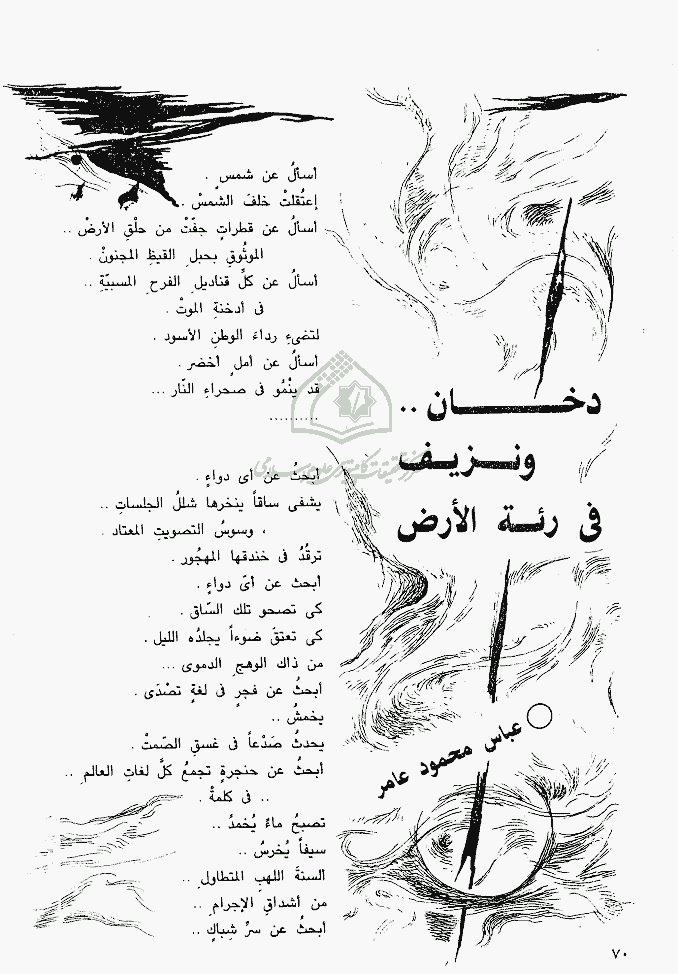 دخـــان ..
ونـــزيـف
فى رئـة الأرض
عباس محمود عامر
أسألُ عن شمسٍ .
إعتُقلتْ خلفَ الشمسْ .
أسألُ عن قطراتٍ جفّتْ من حلْقِ الأرضْ ..
الموثُوقِ بحبلِ القيظِ المجنونْ .
أسألُ عن كلِّ قناديلِ الفرحِ المسبيّةِ ..
فى أدخنةِ الموتْ .
لتضىءِ رداءَ الوطنِ الأسود .
أسألُ عن أملٍ أخضر .
قد ينْمُو فى صحراءِ النّار ...
..........
أبحثُ عن أى دواءٍ .
يشفى ساقاً ينخرها شللُ الجلساتِ ..
، وسوسُ التصويتِ المعتاد .
ترقُدُ فى خندقها المهجُور .
أبحث عن أىّ دواءٍ .
كى تصحو تلك السّاق .
كى تعتقَ ضوءاً يجلدُه الليل .
من ذاك الوهجِ الدموى ...
أبحثُ عن فجرٍ فى لغةٍ تصْدَى .
يخمشُ ..
يحدثُ صَدْعاً فى غسقِ الصّمتْ .
أبحثُ عن حنجرةٍ تجمعُ كلَّ لغاتِ العالمِ ..
.. فى كلمةْ .
تصبحُ ماءً يُخمدُ ..
سيفاً يُخرسُ ..
ألسنةَ اللهبِ المتطاولِ ..
من أشداقِ الإجرامِ ..
أبحثُ عن سرِّ شِباكٍ ..
٧٠